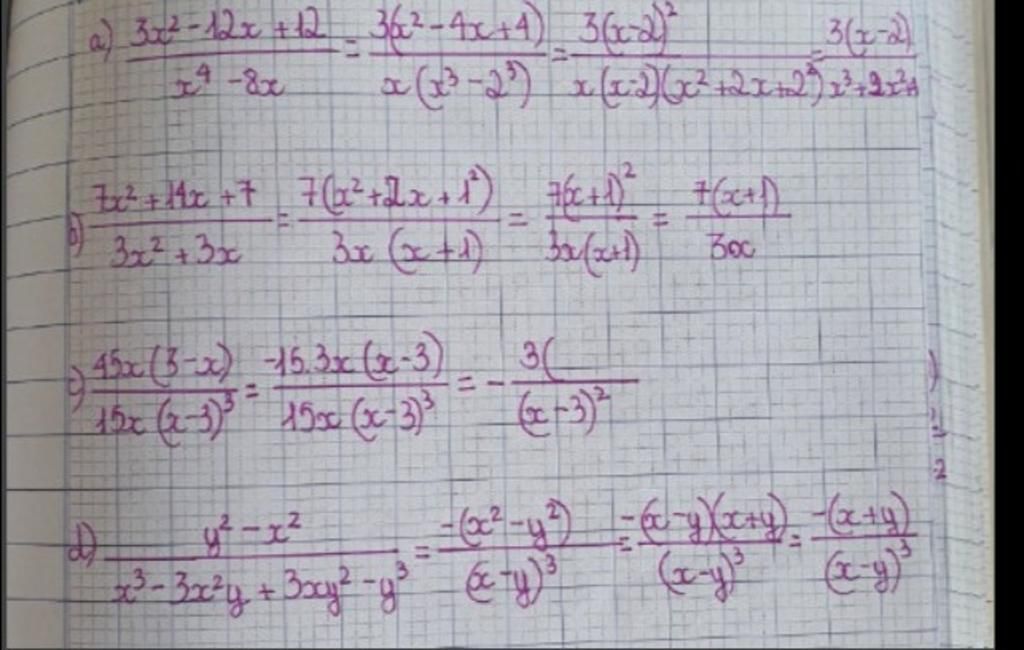 a) (3x² - 12x + 12)/(x⁴ - 8x) = 3(x² - 4x + 4)/(x(x³ - 2³)) = 3(x-2)²/(x(x-2)(x² + 2x + 2²)) = 3(x-2)/(x³ + 2x² +
b) (7x² + 14x + 7)/(3x² + 3x) = 7(x² + 2x + 1²)/(3x(x+1)) = 7(x+1)²/(3x(x+1)) = 7(x+1)/3x
c) 45x(3-x)/(15x(x-3)³) = -15.3x(x-3)/(15x(x-3)³) = - 3(/(x-3)²
d) (y² - x²)/(x³ - 3x²y + 3xy² - y³) = -(x² - y²)/(x-y)³ = -(x-y)(x+y)/(x-y)³ = -(x+y)/(x-y)³